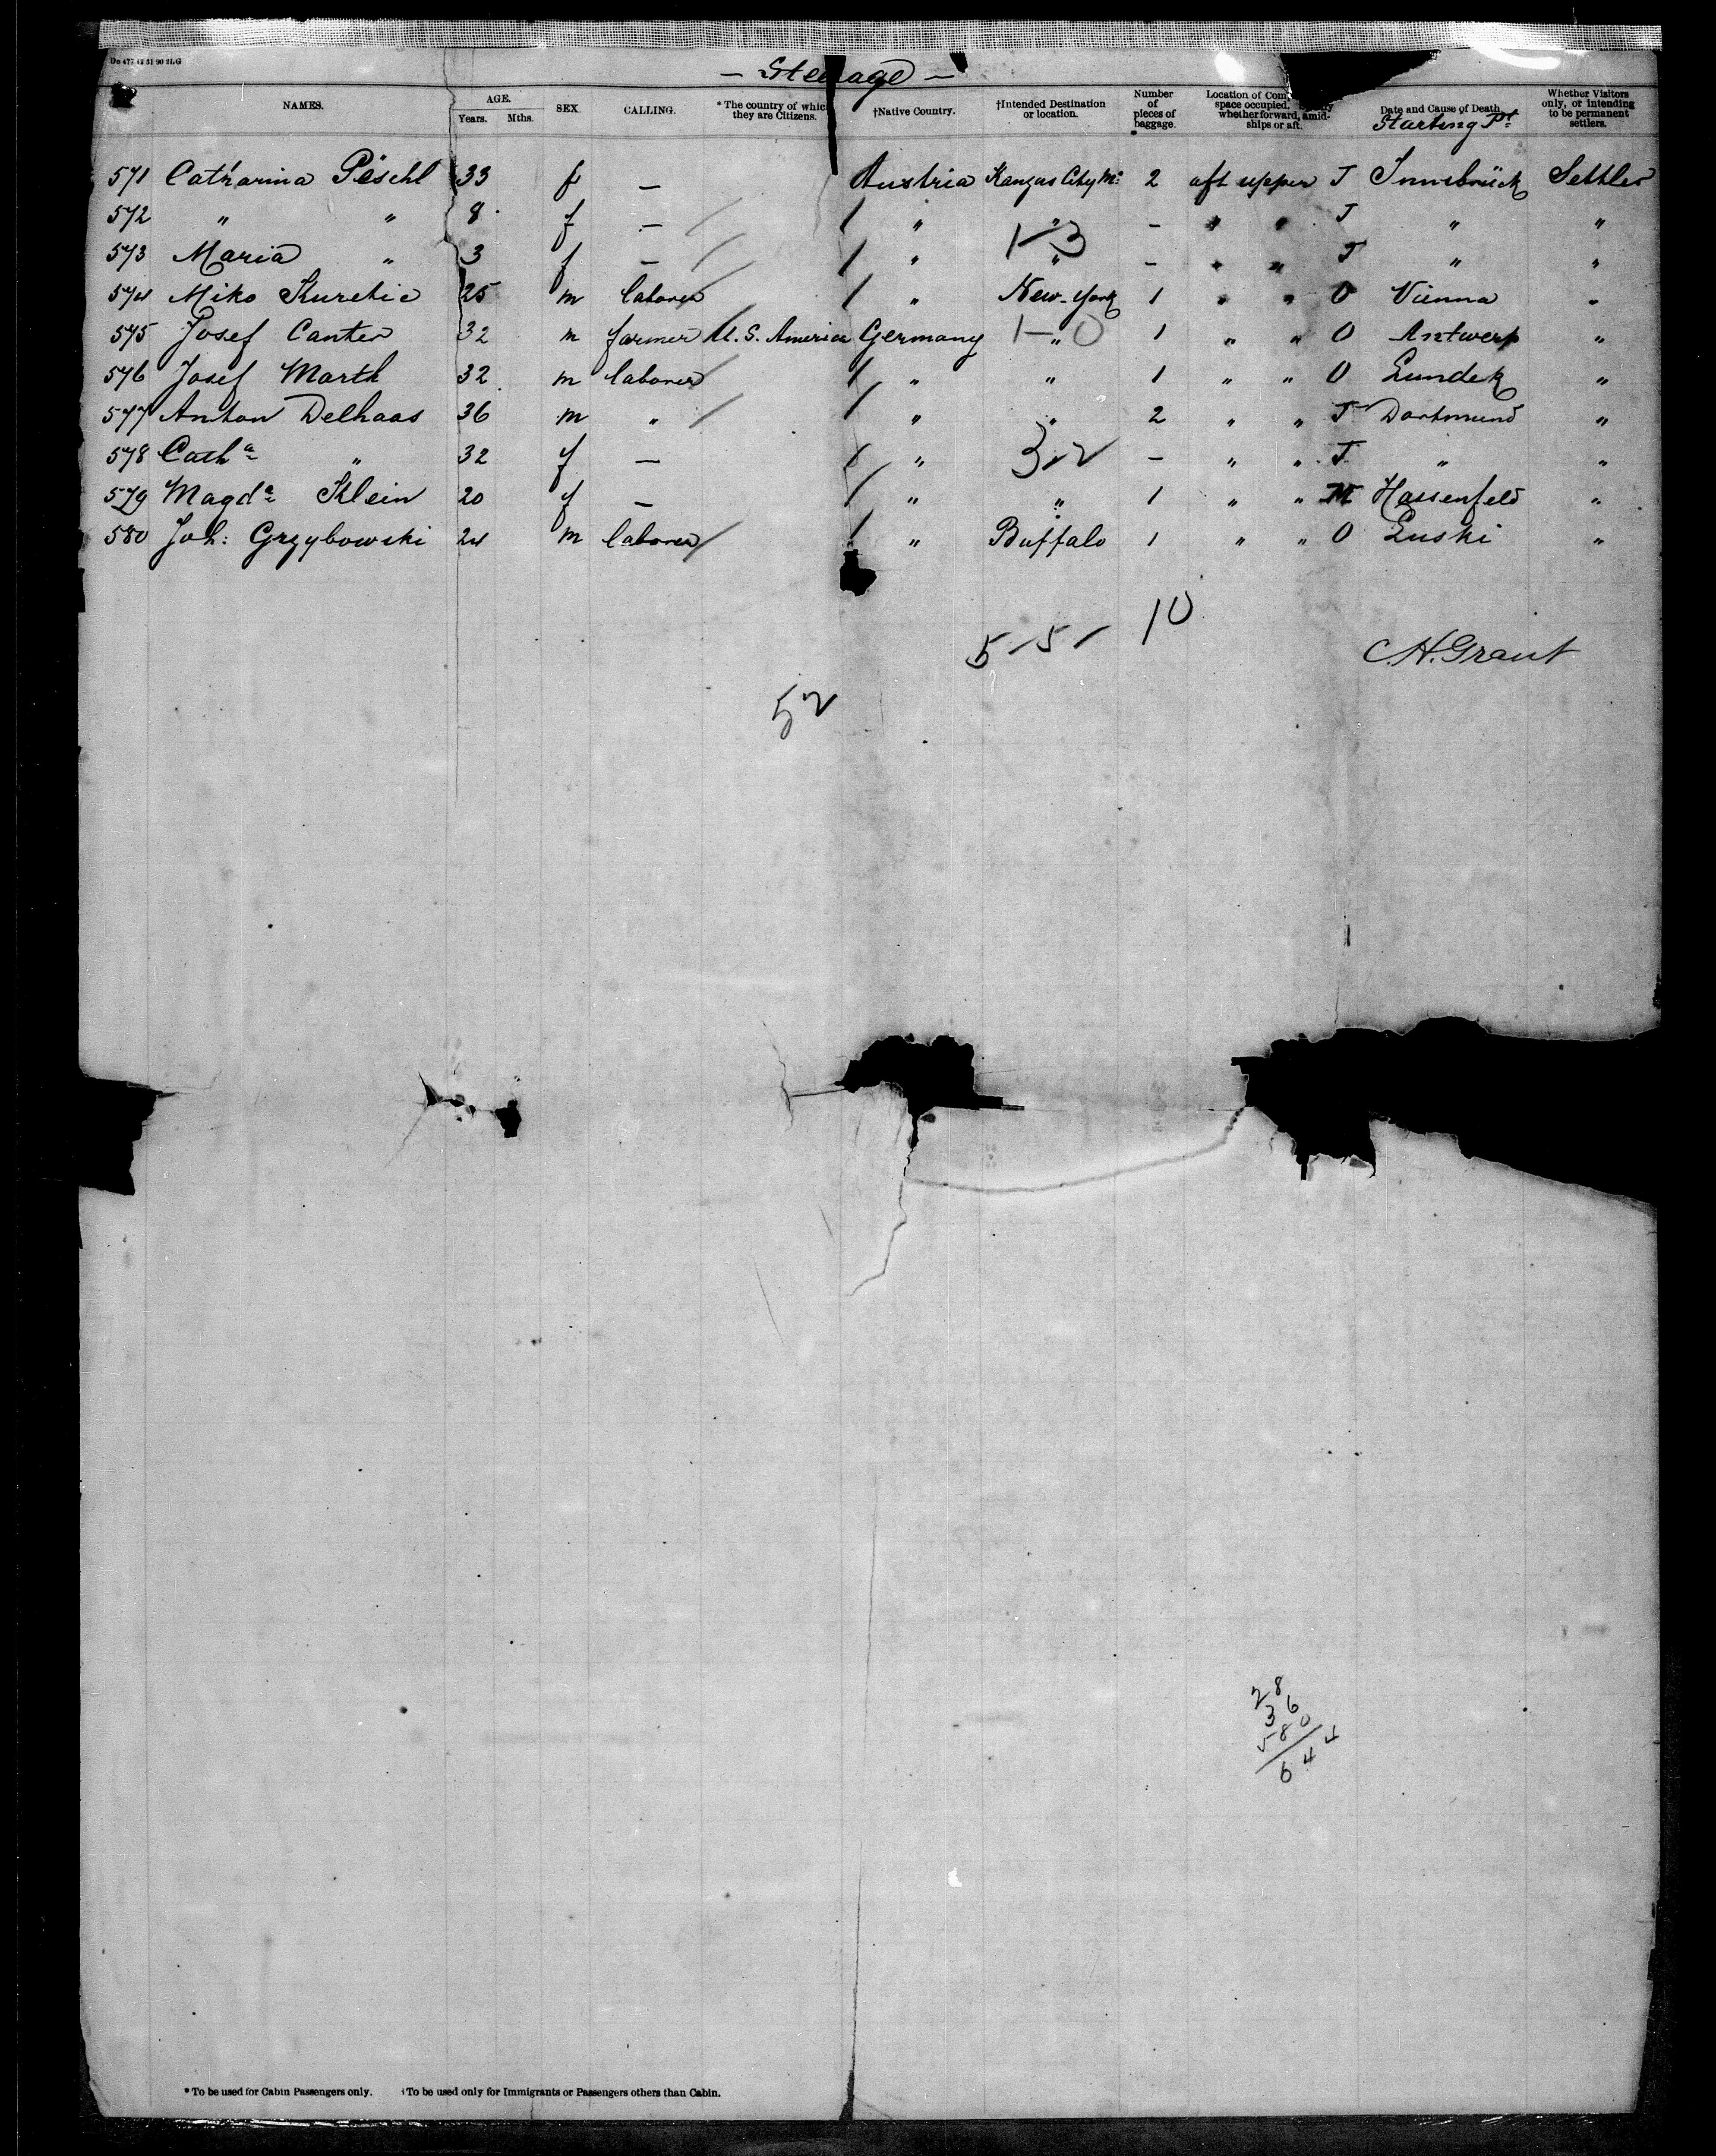 — Steerage —
NAMES. AGE. Years. Mths. SEX. CALLING. * The country of which they are Citizens. †Native Country. †Intended Destination or location. Number of pieces of baggage. Location of space occupied, whether forward, amidships or aft. Date and Cause of Death. Starting Pt. Whether Visitors only, or intending to be permanent settlers.
571 Catharina Peschl 33 f — Austria Kansas City Mo 2 aft upper J Innsbrück Settler
572 " " 8 f — " " — " " J " "
573 Maria " 3 f — " " — " " J " "
1-3
574 Miko Kuretic 25 m laborer " New-York 1 " " O Vienna "
575 Josef Canter 32 m farmer U.S. America Germany " 1 " " O Antwerp "
1-0
576 Josef Marth 32 m laborer " " 1 " " O "
577 Anton Delhaas 36 m " " " 2 " " J Dortmund "
578 Catha " 32 f — " — " " J " "
3-2
579 Magda Klein 20 f — " " 1 " " M Hassenfeld "
580 Joh: Grzybowski 24 m laborer " Buffalo 1 " " O "
5-5- 10
C. H. Grant
52
28
36
580
644
* To be used for Cabin Passengers only. †To be used only for Immigrants or Passengers others than Cabin.